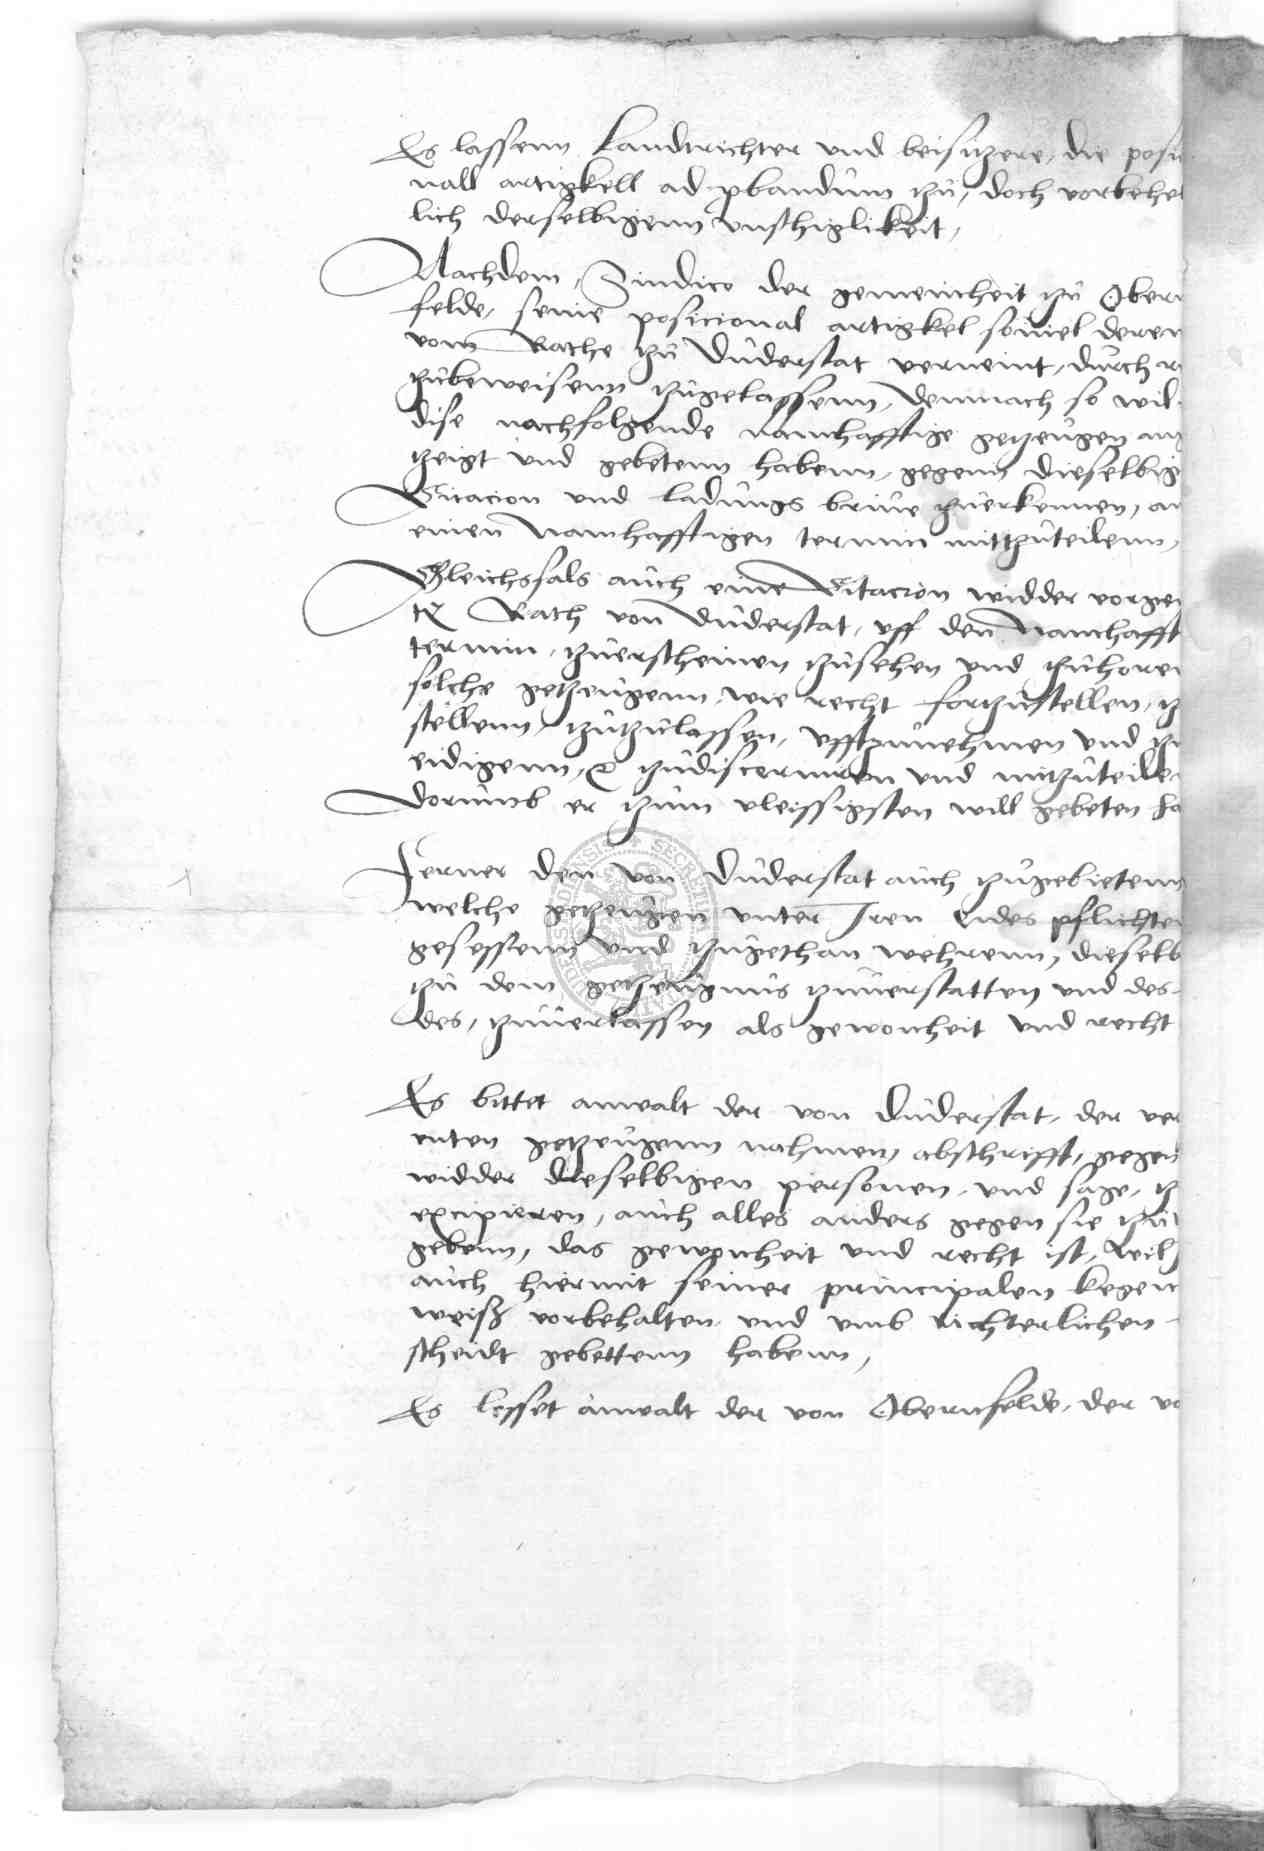 Es lassenn Landtrichter und beisitzere, die posi
nall artigkell ad pbandum zu, doch vorbehe
lich derselbigenn unschiglikeit,
Nachdem, Sindico der gemeincheit zu Obern
felde, seine posicional artigkel soviel deren
vom Rathe zu Duderstat verneint, durch
zubeweisenn zugelassenn, demnach so wil
dise nachfolgende namhafftige getzeugen an
tzeigt und gebetenn habenn, gegenn dieselbig
Citacion und ladungs brive zuerkennen, an
einen namhafftigen termin mittzuteilenn,
Gleichsfals auch eine Citacion widder vorgen
Rath von Duderstat, uff den namhafft
termin, zuerscheinen zusehen und zuhoren
solche getzeugenn, wie recht fortzustellen, z
stellenn, zutzulassen, ufftzunehmen und zu
eidigenn, zudiscerniren und mitzuteile
dorumb er zum vleissigsten will gebeten ha
Ferner den von Duderstat auch zugebietenn
welche getzeugen unter Iren Eides pflichten
gesessenn und zugethan wehrenn, dieselb
zu dem getzeugnus zuverstatten und des
des, zuverlassen als gewoncheit und recht
Es bittet anwalt der von Duderstat, der ver
nten getzeugenn nahmen, abschrifft, gegen
widder dieselbigen personen, und sage, z
excipieren, auch alles anders gegen sie zu
gebenn, das gewoncheit und recht ist, will
auch hiermit seiner principalen kegen
weiß vorbehalten, und umb richterlichen
scheidt gebettenn habenn,
Es lesset anwalt der von Obernfelde, der vo